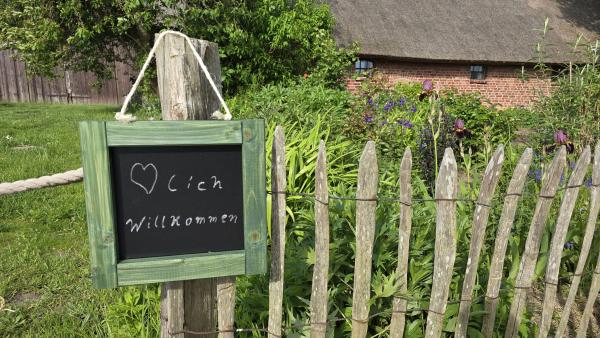 ♡Lich
Willkommen